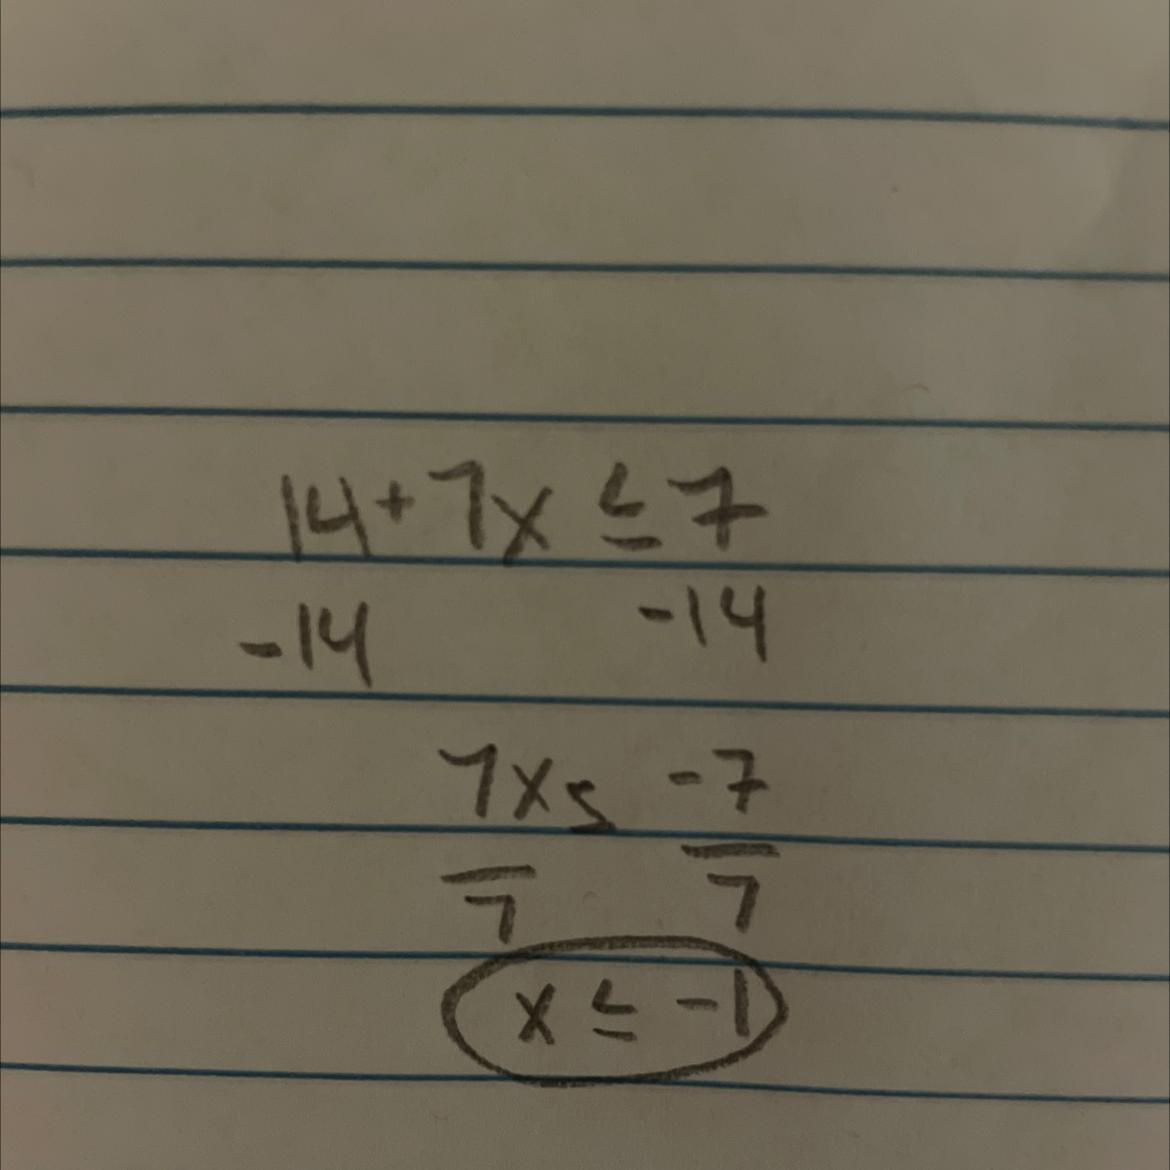 14 + 7x ≤ 7
-14 -14
7x ≤ -7
7 7
x ≤ -1